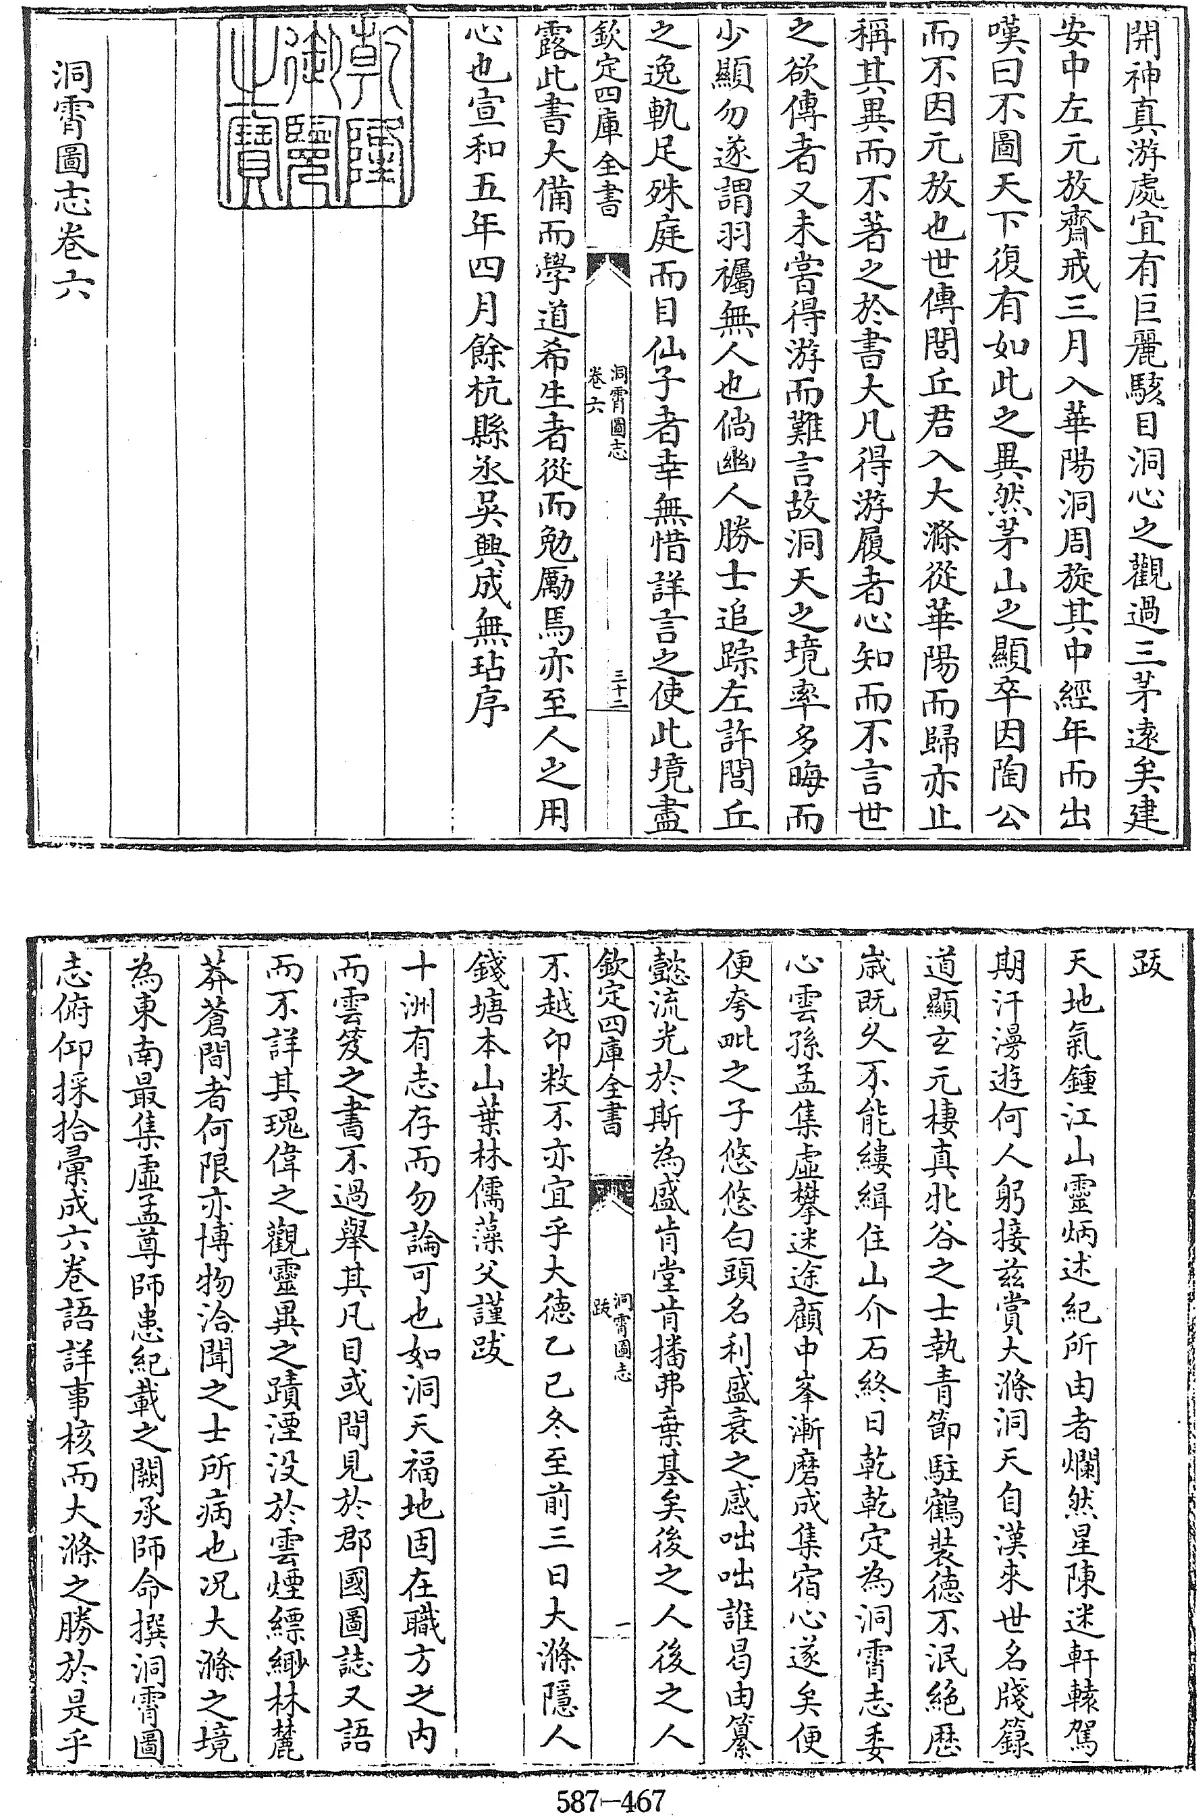 開神真游處宜有巨麗駭目洞心之觀過三茅遠矣建
安中左元放齊戒三月入華陽洞周旋其中經年而出
嘆曰不圖天下復有如此之異然茅山之顯卒因陶公
而不因元放也世傳閭丘君入大滌從華陽而歸亦止
稱其異而不著之於書大凡得游履者心知而不言世
之欲傳者又未嘗得游而難言故洞天之境率多晦而
少顯勿遂謂羽襹無人也倘幽人勝士追踪左許閭丘
之逸軌足殊庭而目仙子者幸無惜詳言之使此境盡
欽定四庫全書
洞霄圖志
卷六
三十二
露此書大備而學道希生者從而勉勵焉亦至人之用
心也宣和五年四月餘杭縣丞吳興成無玷序
乾隆
御覽
之寶
洞霄圖志卷六
跋
天地氣鍾江山靈炳述紀所由者爛然星陳迷軒轅駕
期汗漫遊何人躬接茲賞大滌洞天自漢來世名牋籙
道顯玄元棲真北谷之士執青節駐鶴裝德不泯絕歷
歲既久不能縷緝住山介石終日乾乾定為洞霄志委
心雲孫孟集虛攀迷途顧中峯漸磨成集宿心遂矣便
便夸毗之子悠悠白頭名利盛衰之感咄咄誰曷由纂
懿流光於斯為盛肯堂肯播弗棄基矣後之人後之人
欽定四庫全書
洞霄圖志
跋
一
不越印敕不亦宜乎大德乙巳冬至前三日大滌隱人
錢塘本山葉林儒藻父謹跋
十洲有志存而勿論可也如洞天福地固在職方之内
而雲笈之書不過舉其凡目或間見於郡國圖誌又語
而不詳其瑰偉之觀靈異之蹟湮没於雲煙縹緲林麓
莽蒼間者何限亦博物洽聞之士所病也况大滌之境
為東南最集虛孟尊師患紀載之闕承師命撰洞霄圖
志俯仰採拾彙成六卷語詳事核而大滌之勝於是乎
587-467